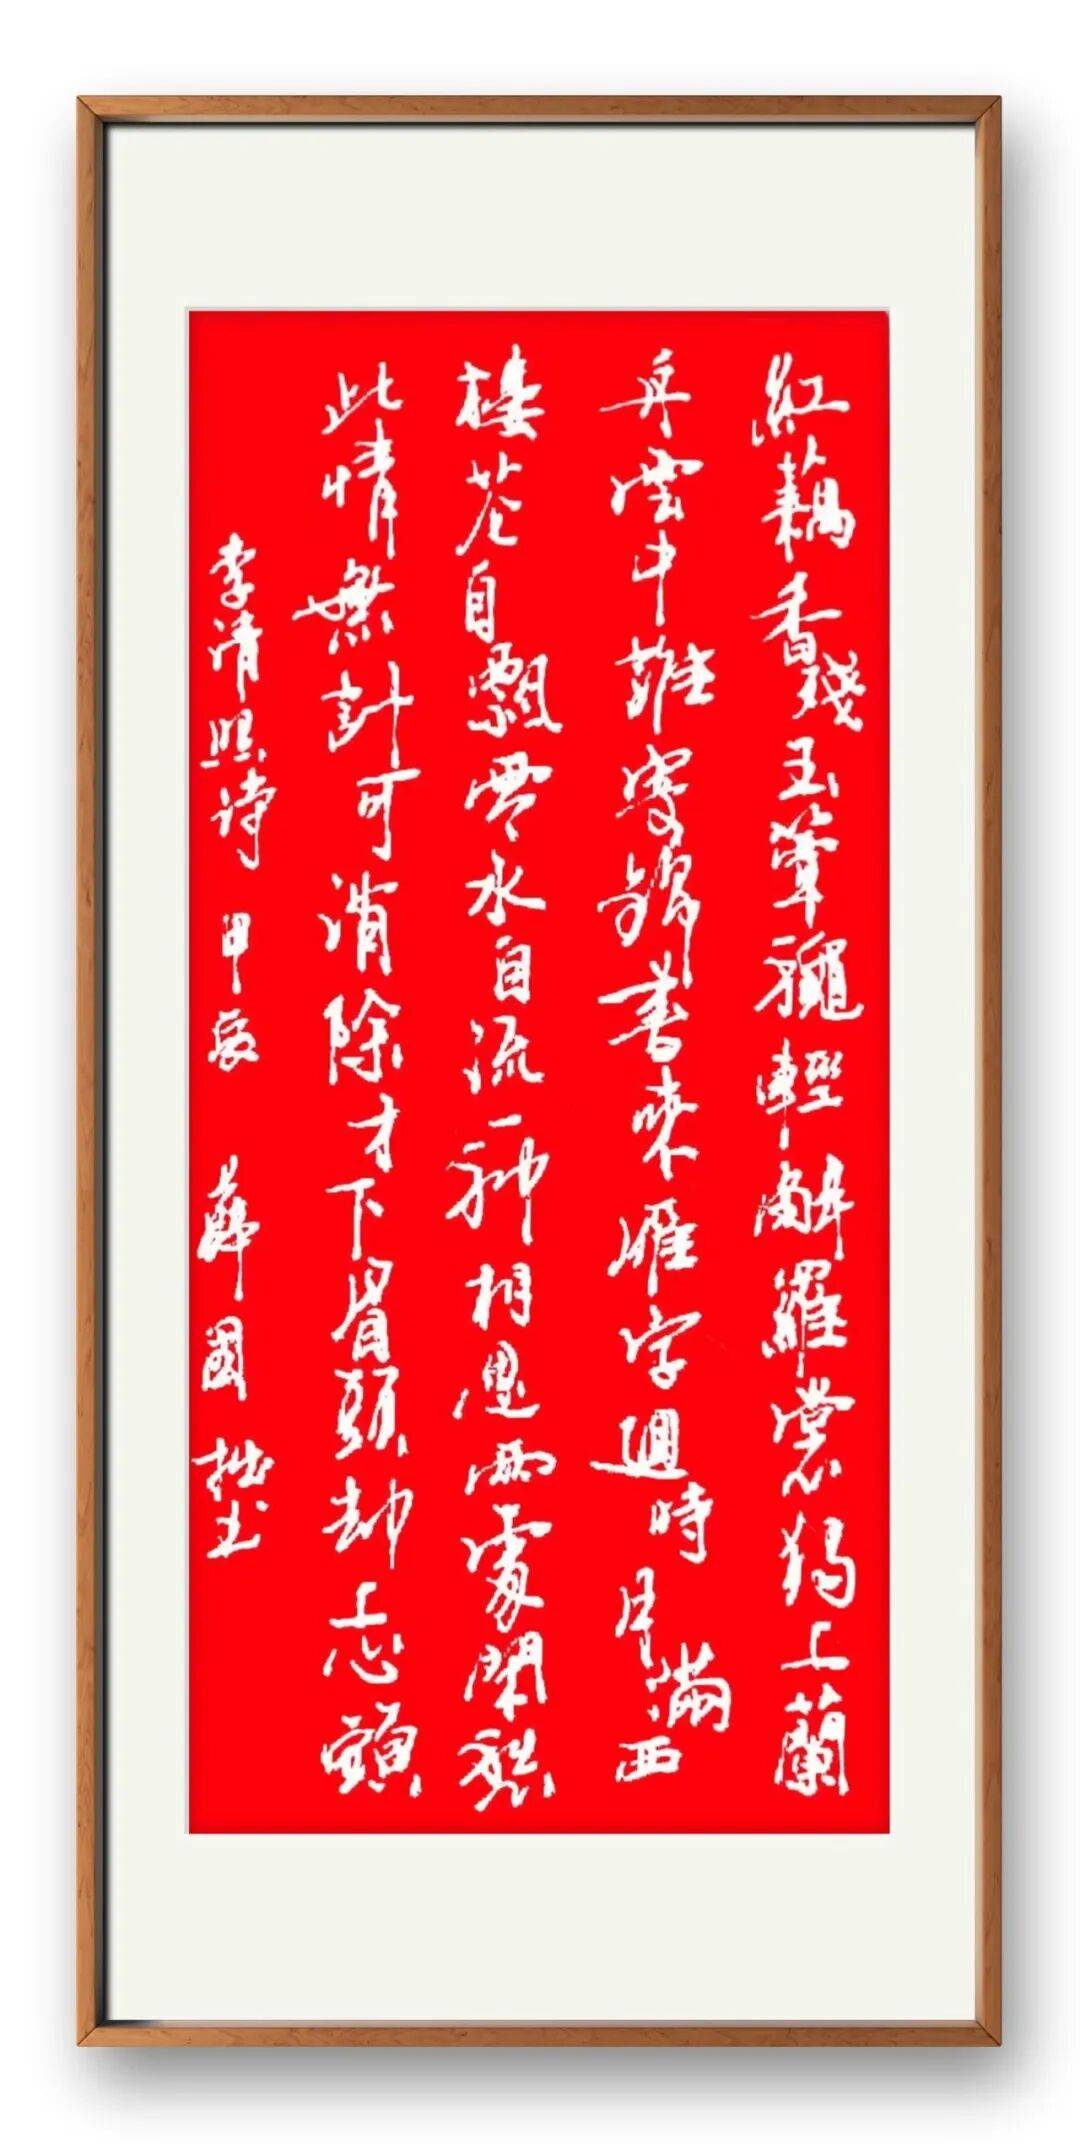 紅藕香殘玉簟龝輕解羅裳獨上蘭
舟雲中難寄錦書來雁字迴時月滿西
樓花自飄零水自流一种相思兩處閑愁
此情無計可消除才下眉頭却上心頭
李清照诗 甲辰 薛國 拙书